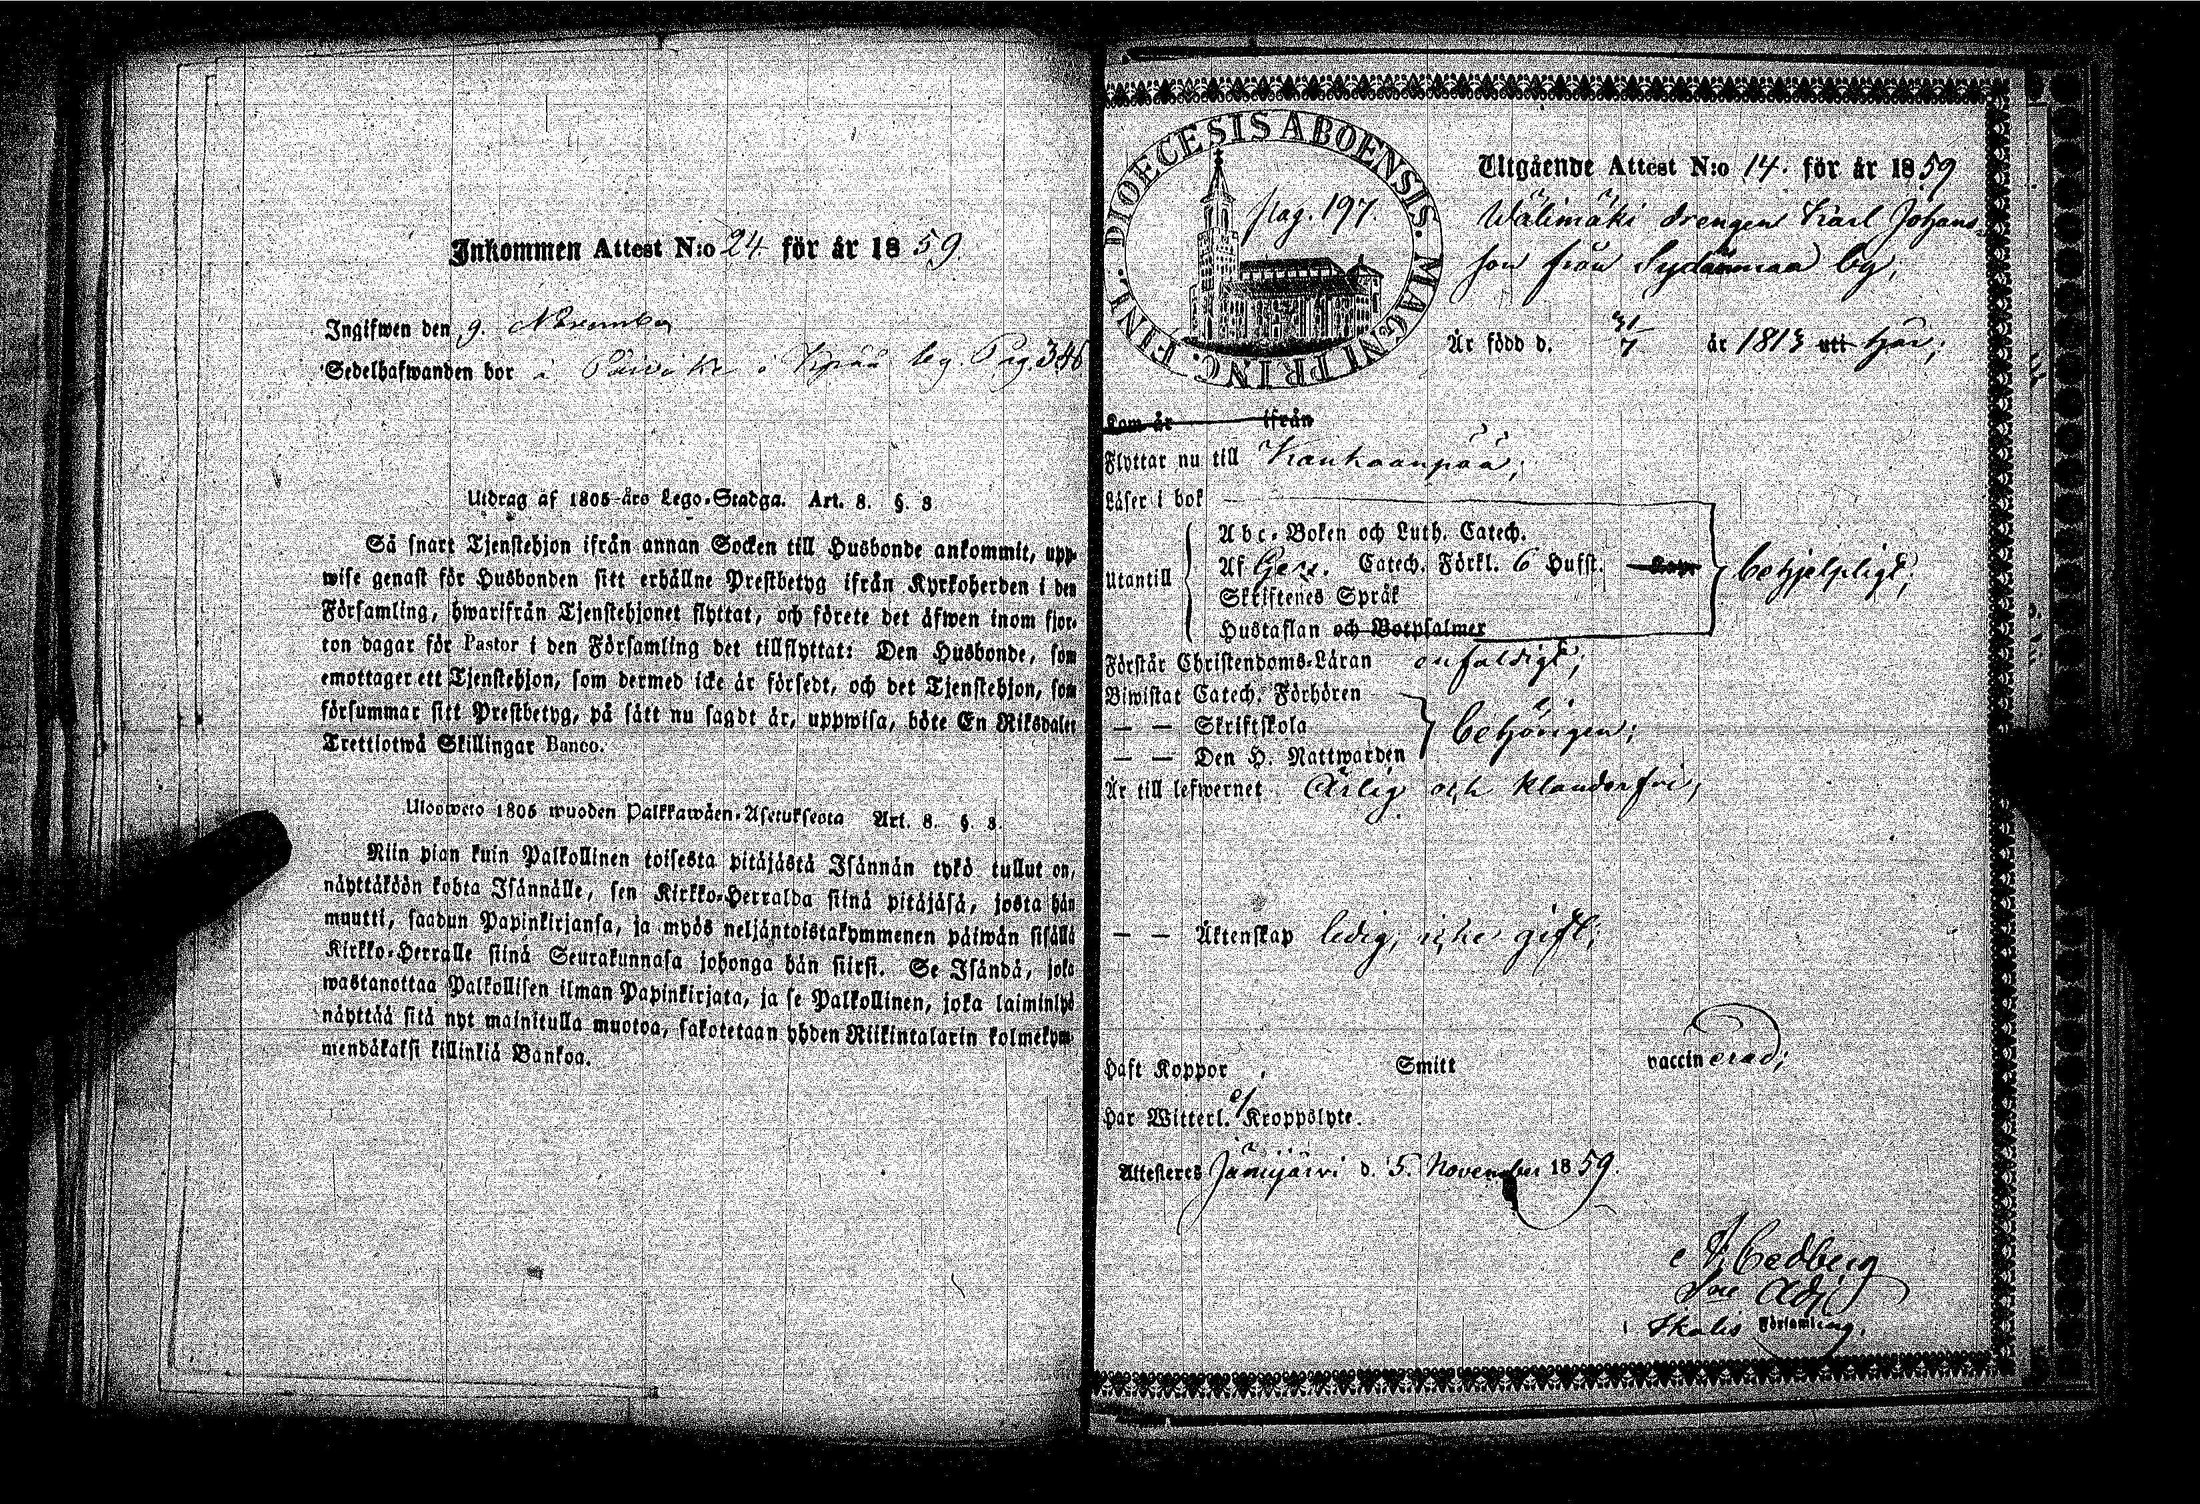 Inkommen Attest N:o 24. för år 1859.
Ingifwen den 9. November
Sedelhafwanden bor i Päivike i Kypää by. Pag. 346
Utdrag af 1805 års Lego-Stadga. Art. 8. §. 8
Så snart Tjenstehjon ifrån annan Socken till Husbonde ankommit, upp-
wise genast för Husbonden sitt erhållne Prestbetyg ifrån Kyrkoherden i den
Församling, hwarifrån Tjenstehjonet flyttat, och förete det äfwen inom fjor-
ton dagar för Pastor i den Församling det tillflyttat: Den Husbonde, som
emottager ett Tjenstehjon, som dermed icke är försedt, och det Tjenstehjon, som
försummar sitt Prestbetyg, på sätt nu sagdt är, uppwisa, böte En Riksdaler
Trettiotwå Skillingar Banco.
Ulosweto 1805 wuoden Palkkawäen-Asetuksesta Art. 8. §. 8.
Niin pian kuin Palkollinen toisesta pitäjästä Isännän tykö tullut on,
näyttäköön kohta Isännälle, sen Kirkko-Herralda siinä pitäjäsä, josta hän
muutti, saadun Papinkirjansa, ja myös neljäntoistakymmenen päiwän sisällä
Kirkko-Herralle siinä Seurakunnasa johonga hän siirsi. Se Isändä, joka
wastanottaa Palkollisen ilman Papinkirjata, ja se Palkollinen, joka laiminlyö
näyttää sitä nyt mainitulla muotoa, sakotetaan yhden Riikintalarin kolmekym-
mendäkaksi killinkiä Bankoa.
DIOECESIS ABOENSIS. MAGNI PRINC. FINL.
pag. 197.
Utgående Attest N:o 14. för år 1859
Wälimäki drengen Karl Johans-
son från Sydänmaa by,
Är född d. 31/7 år 1813 uti här;
Kom år ifrån
Flyttar nu till Kankaanpää;
Läser i bok
Utantill
Abc-Boken och Luth. Catech.
Af Gez. Catech. Förkl. 6 Hufst.
Skriftenes Språk
Hustaflan och Botpsalmer
behjelpligt;
Förstår Christendoms-Läran enfaldigt;
Biwistat Catech. Förhören
— — Skriftskola
— — Den H. Nattwarden
behörigen;
Är till lefwernet ärlig och klanderfri;
— — Äktenskap ledig, icke gift;
Haft Koppor, Smitt vaccinerad;
Har Witterl. e/ Kroppslyte.
Attesteres Jämijärvi d. 5. November 1859.
Cedberg
Adj
i Ikalis Församling.